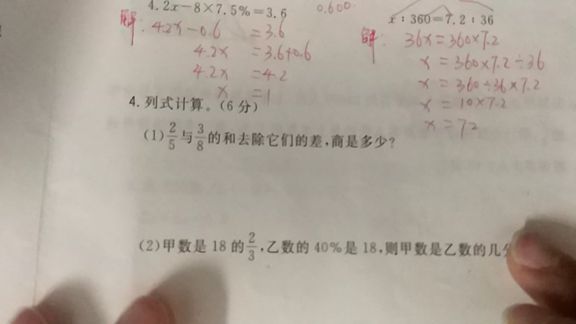 4.2x-8×7.5%=3.6
0.600
x:360=7.2:36
解: 4.2x-0.6=3.6
4.2x=3.6+0.6
4.2x=4.2
x=1
解: 36x=360×7.2
x=360×7.2÷36
x=360÷36×7.2
x=10×7.2
x=72
4. 列式计算。(6分)
(1) 2/5 与 3/8 的和去除它们的差,商是多少?
(2) 甲数是 18 的 2/3,乙数的 40% 是 18,则甲数是乙数的几